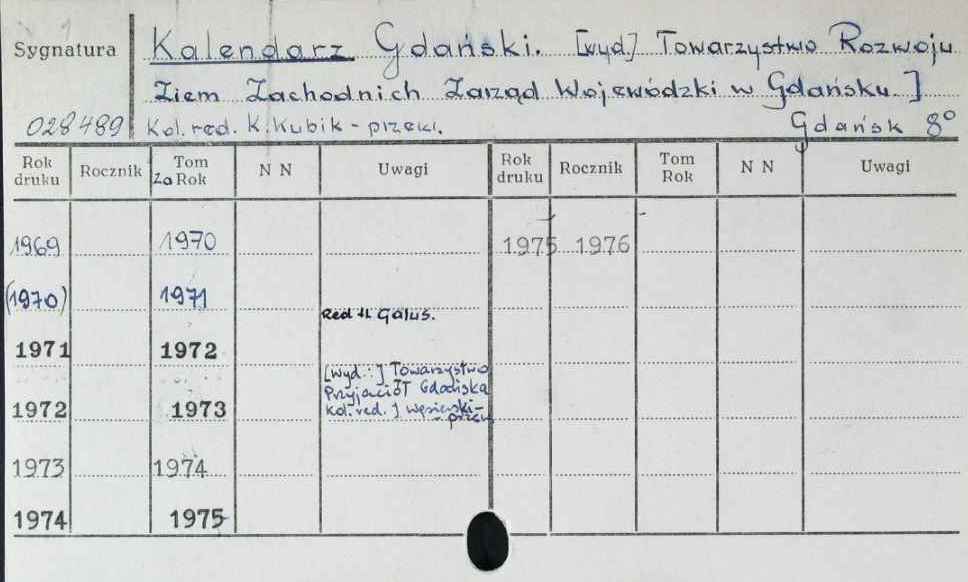 Sygnatura Kalendarz Gdański. [wyd] Towarzystwo Rozwoju
Ziem Zachodnich Zarząd Wojewódzki w Gdańsku.]
028489 Kol. red. K. Kubik - przew. Gdańsk 8°
Rok druku Rocznik Tom Za Rok N N Uwagi Rok druku Rocznik Tom Rok N N Uwagi
1969 1970 1975 1976
(1970) 1971
Red. H. Galus.
1971 1972
[wyd.:] Towarzystwo
Przyjaciół Gdańska
1972 1973 Kol. red. J. Węsierski -
- przew.
1973 1974
1974 1975